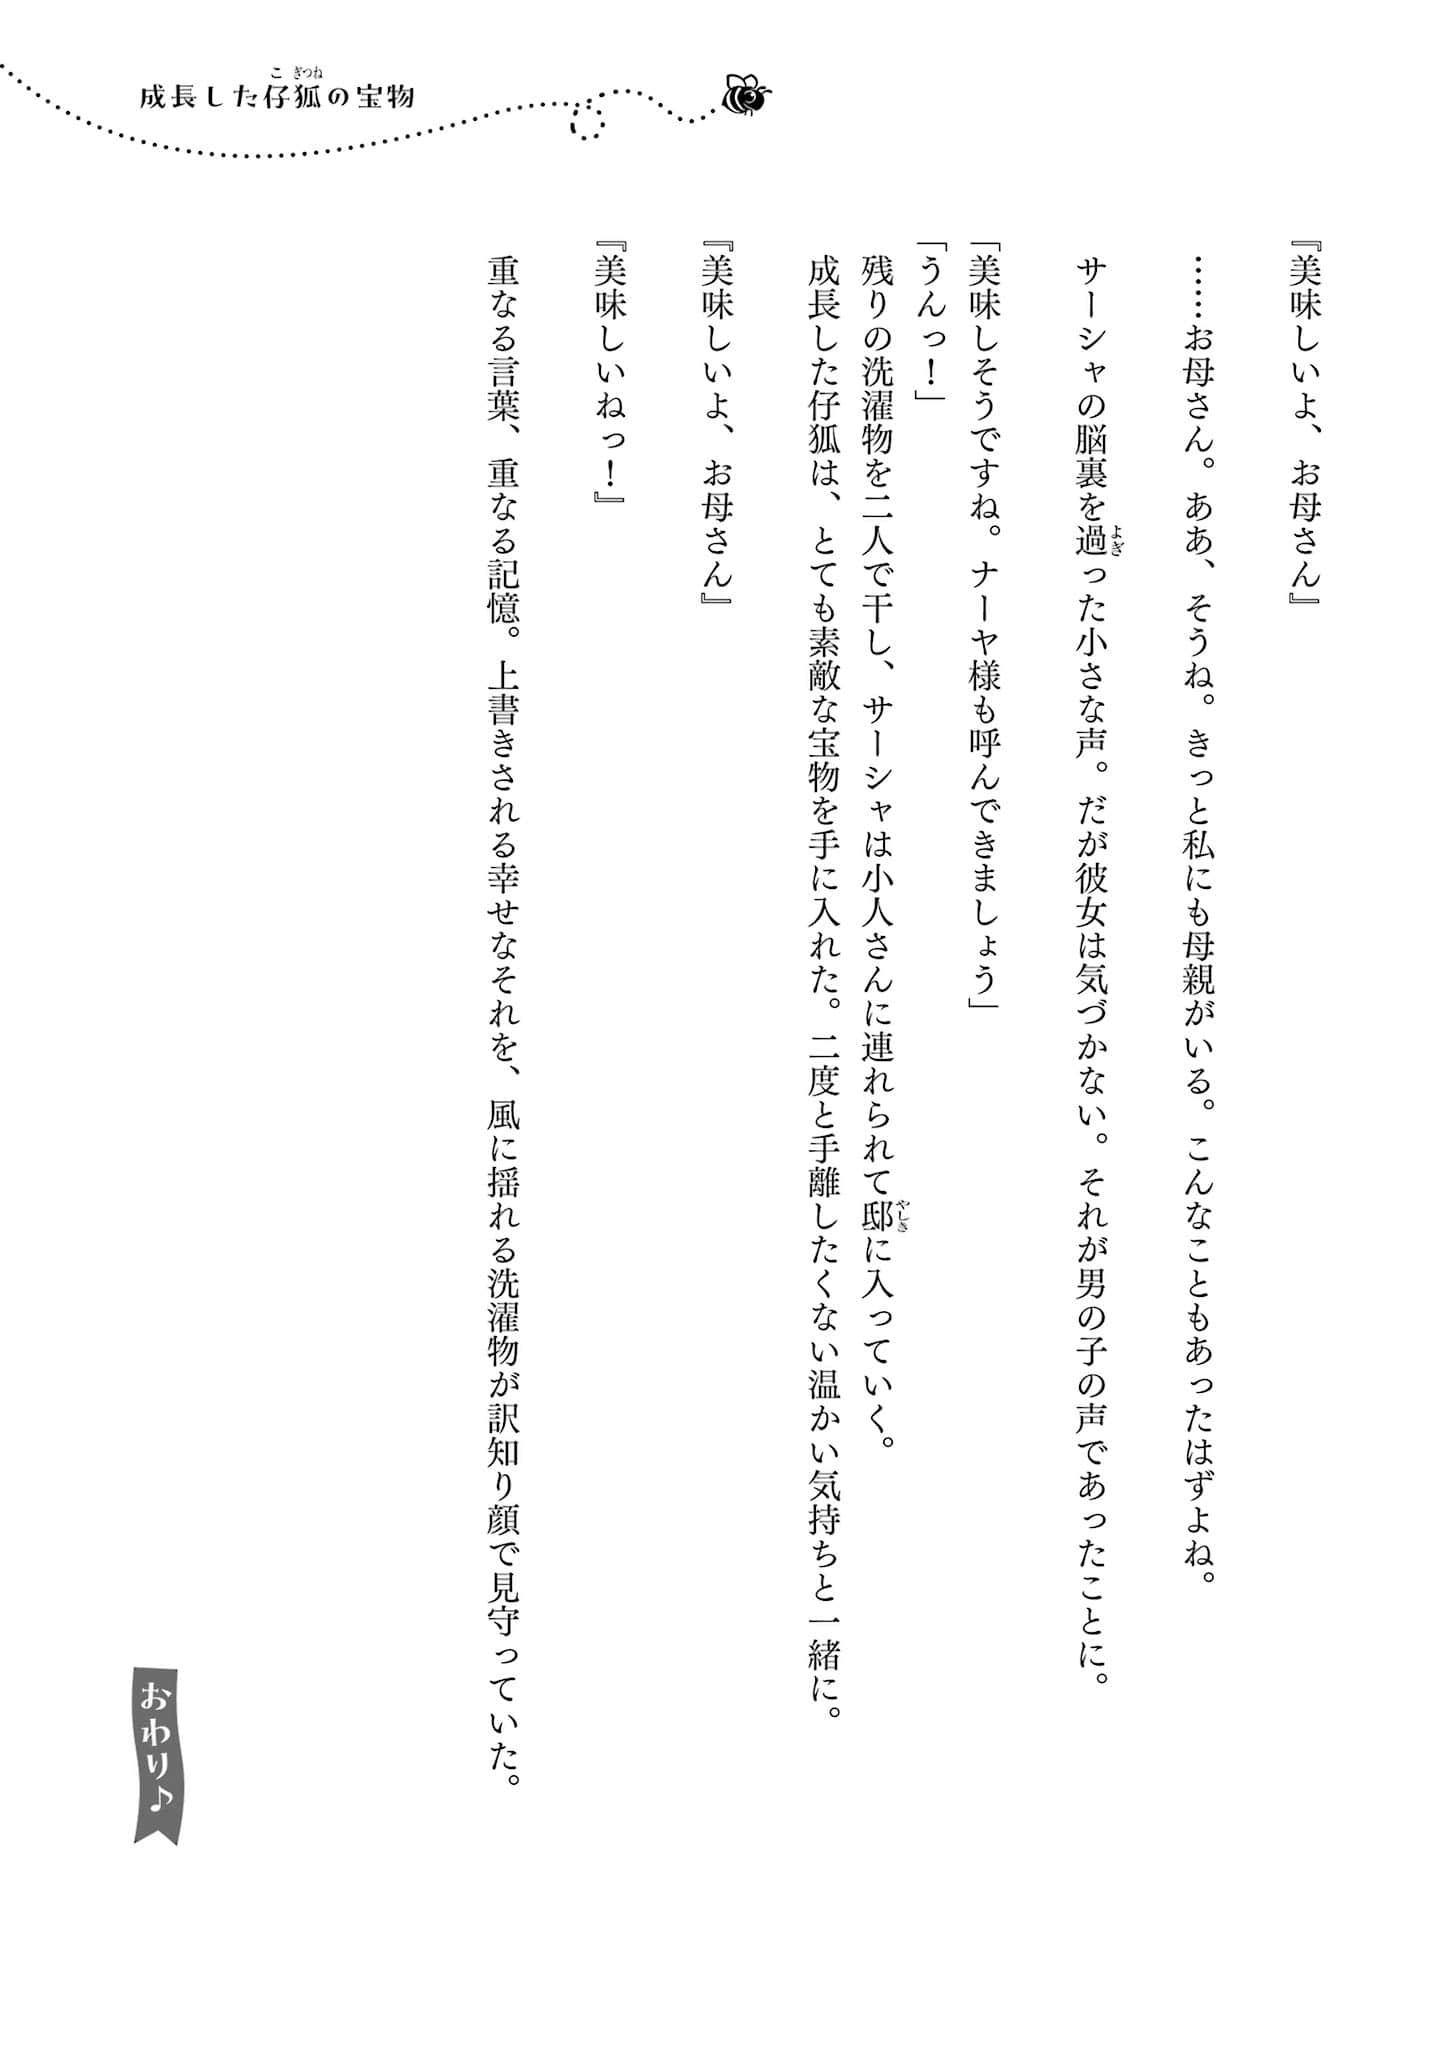 成長した仔狐の宝物
『美味しいよ、お母さん』
……お母さん。ああ、そうね。きっと私にも母親がいる。こんなこともあったはずよね。
サーシャの脳裏を過った小さな声。だが彼女は気づかない。それが男の子の声であったことに。
「美味しそうですね。ナーヤ様も呼んできましょう」
「うんっ！」
残りの洗濯物を二人で干し、サーシャは小人さんに連れられて邸に入っていく。
成長した仔狐は、とても素敵な宝物を手に入れた。二度と手離したくない温かい気持ちと一緒に。
『美味しいよ、お母さん』
『美味しいねっ！』
重なる言葉、重なる記憶。上書きされる幸せなそれを、風に揺れる洗濯物が訳知り顔で見守っていた。
おわり♪